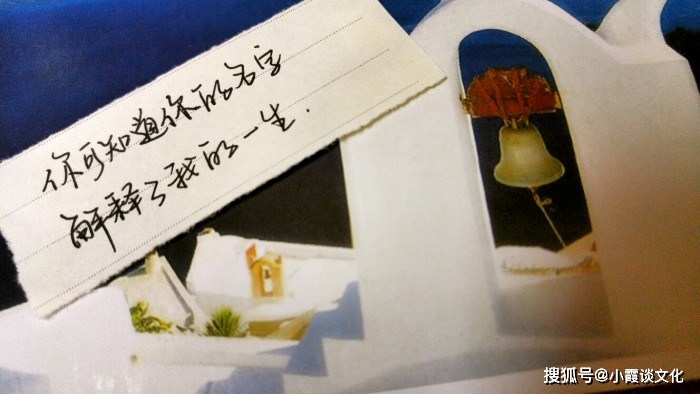 你可知道你的名字
解释了我的一生.
搜狐号@小霞谈文化